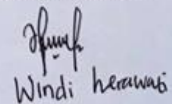 Windi herawati